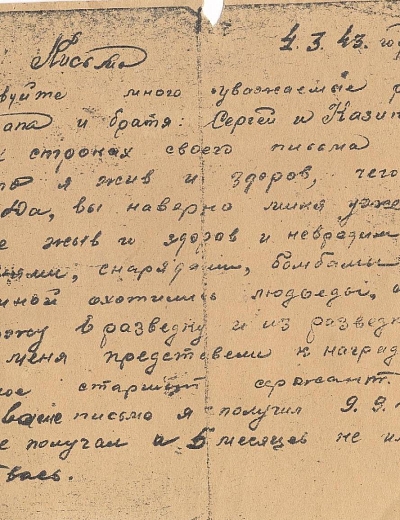 4. 3. 43. го
Письмо
вуйте много уважаемые р
апа и братя: Сергей и Казим
х строках своего письма
то я жив и здоров, чего
Да, вы наверно миня уже
е жыв и здоров и невредим
нями, снарядами, бомбамы
мной охотились людоеды, а
хожу в разведку и из разведк
меня представели к наград
ное старший сержант.
ваше письмо я получил 9. 3.
не получал а 5 месяцев не и
твась.